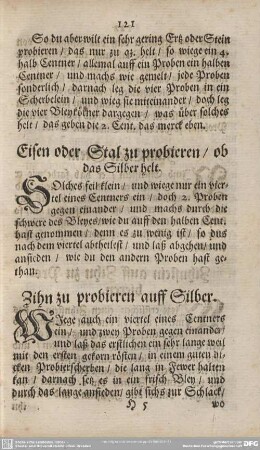 121
So du aber wilt ein sehr gering Ertz oder Stein
probieren / das nur zu q3. helt / so wiege ein 4.
halb Centner / allemal auff ein Proben ein halben
Centner / und machs wie gemelt / jede Proben
sonderlich / darnach leg die vier Proben in ein
Scherbelein / und wieg sie miteinander / doch leg
die vier Bleykörner dargegen / was über solches
helt / das geben die 2. Cent. das merck eben.
Eisen oder Stal zu probieren / ob
das Silber helt.
SOlches feil klein / und wiege nur ein vier-
tel eines Centners ein / doch 2. Proben
gegen einander / und machs durch die
schwere des Bleyes / wie du auff den halben Cent.
hast genommen / denn es zu wenig ist / so dus
nach dem viertel abtheilest / und laß abgehen / und
ansieden / wie du den andern Proben hast ge-
than.
Zihn zu probieren auff Silber.
WIege auch ein viertel eines Centners
ein / und zwey Proben gegen einander /
und laß das erstlichen ein sehr lange weil
mit den ersten gekorn rösten / in einem guten di-
cken Probierscherben / die lang in Fewer halten
kan / darnach setz es in ein frisch Bley / und
durch das lange ansieden / gibt sichs zur Schlack /
H 5
wo